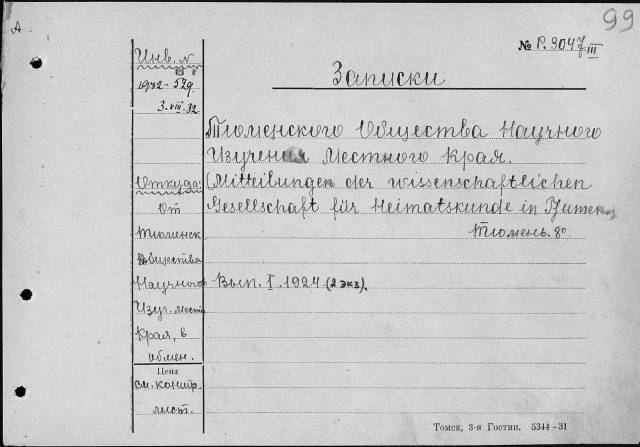 А
99
№ Р.9047 III
Инв. №
1932-529
3.VIII.32
Записки
Тюменского Общества Научного
Изучения Местного Края.
Откуда:
(Mitteibungen der wissenschaftlichen
От
Gesellschaft für Heimatskunde in Tjumen.
Тюменск
Тюмень. 8°
Общества
Научного
Вып. I. 1924 (2 экз).
Изуч. мест.
Края, в
обмен.
Цена
см. копир.
лист.
Томск, 3-я Гостип. 5344-31